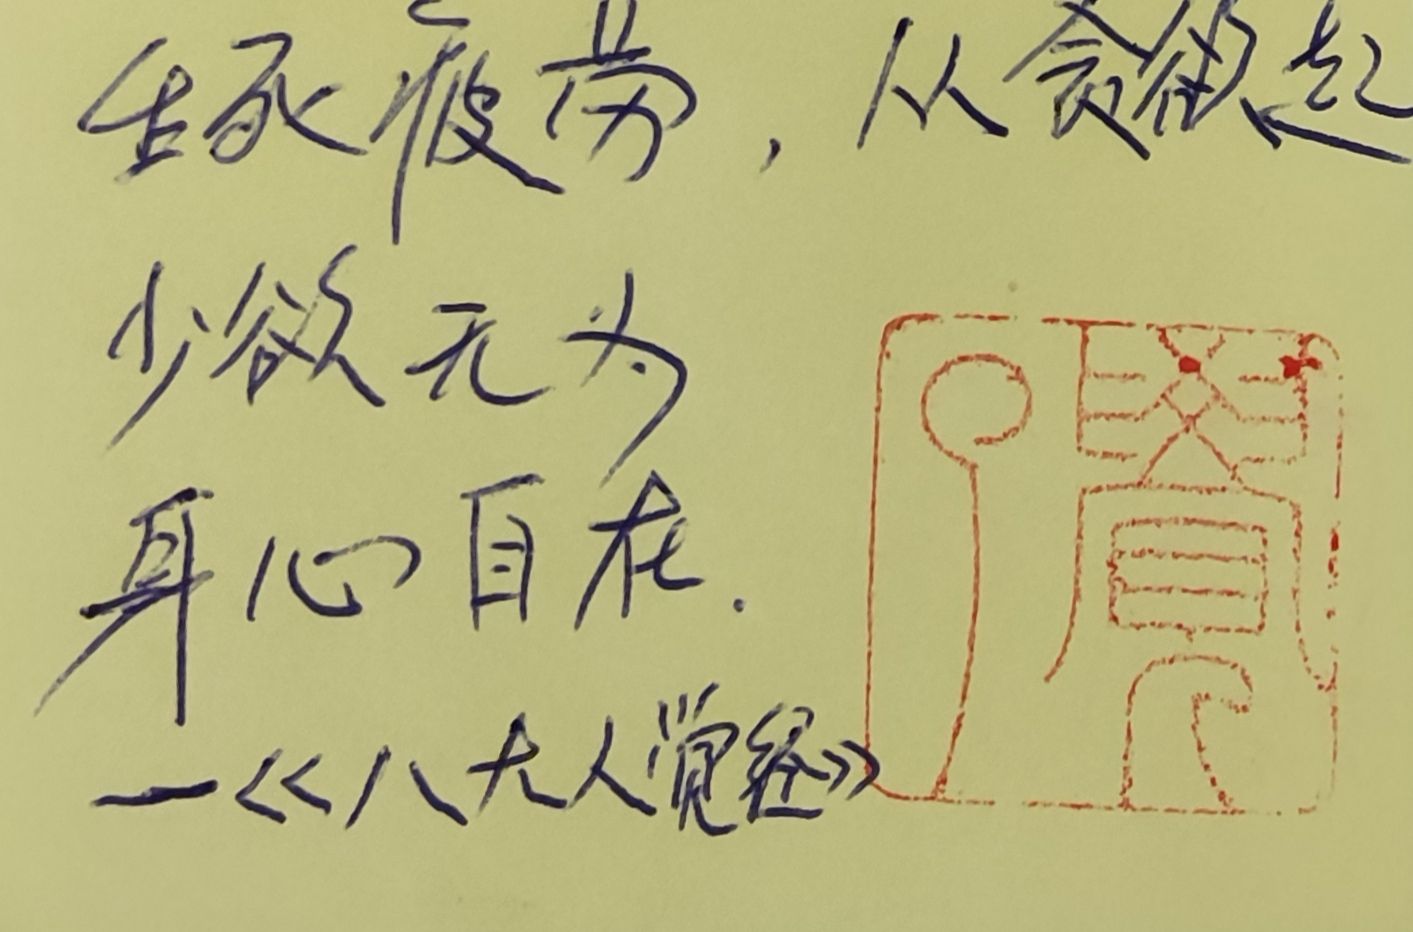 生死疲劳，从贪欲起
少欲无为
身心自在.
—《八大人觉经》